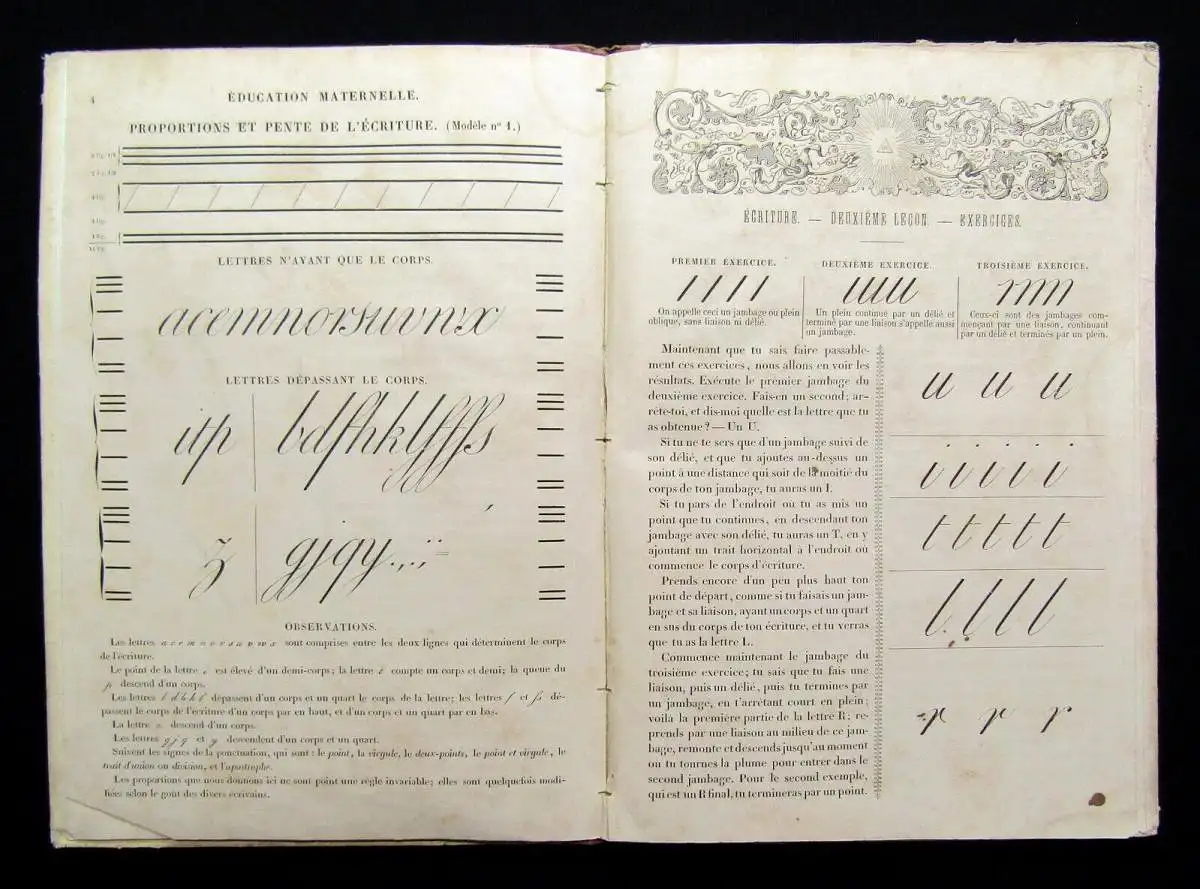 4
ÉDUCATION MATERNELLE.
PROPORTIONS ET PENTE DE L'ÉCRITURE. (Modèle nº 1.)
LETTRES N'AYANT QUE LE CORPS.
acemnorsuvnx
LETTRES DÉPASSANT LE CORPS.
itp
z
OBSERVATIONS.
Les lettres a c e m n o r s u v w x sont comprises entre les deux lignes qui déterminent le corps
de l'écriture.
Le point de la lettre i est élevé d'un demi-corps; la lettre t compte un corps et demi; la queue du
p descend d'un corps.
Les lettres b d h k l dépassent d'un corps et un quart le corps de la lettre; les lettres f et fs dé-
passent le corps de l'écriture d'un corps par en haut, et d'un corps et un quart par en bas.
La lettre z descend d'un corps.
Les lettres g j q et y descendent d'un corps et un quart.
Suivent les signes de la ponctuation, qui sont : le point, la virgule, le deux-points, le point et virgule, le
trait d'union ou division, et l'apostrophe.
Les proportions que nous donnons ici ne sont point une règle invariable; elles sont quelquefois modi-
fiées selon le goût des divers écrivains.
ÉCRITURE. — DEUXIÈME LEÇON. — EXERCICES.
PREMIER EXERCICE.
On appelle ceci un jambage ou plein
oblique, sans liaison ni délié.
DEUXIÈME EXERCICE.
Un plein continué par un délié et
terminé par une liaison s'appelle aussi
un jambage.
TROISIÈME EXERCICE.
Ceux-ci sont des jambages com-
mençant par une liaison, continuant
par un délié et terminés par un plein.
Maintenant que tu sais faire passable-
ment ces exercices, nous allons en voir les
résultats. Exécute le premier jambage du
deuxième exercice. Fais-en un second; ar-
rête-toi, et dis-moi quelle est la lettre que tu
as obtenue ? — Un U.
Si tu ne te sers que d'un jambage suivi de
son délié, et que tu ajoutes au-dessus un
point à une distance qui soit de la moitié du
corps de ton jambage, tu auras un I.
Si tu pars de l'endroit ou tu as mis un
point que tu continues, en descendant ton
jambage avec son délié, tu auras un T, en y
ajoutant un trait horizontal à l'endroit où
commence le corps d'écriture.
Prends encore d'un peu plus haut ton
point de départ, comme si tu faisais un jam-
bage et sa liaison, ayant un corps et un quart
en sus du corps de ton écriture, et tu verras
que tu as la lettre L.
Commence maintenant le jambage du
troisième exercice; tu sais que tu fais une
liaison, puis un délié, puis tu termines par
un jambage, en t'arrêtant court en plein;
voilà la première partie de la lettre R; re-
prends par une liaison au milieu de ce jam-
bage, remonte et descends jusqu'au moment
ou tu tournes la plume pour entrer dans le
second jambage. Pour le second exemple,
qui est un R final, tu termineras par un point.
u u u
i i i i i
t t t t t
l l l l
r r r